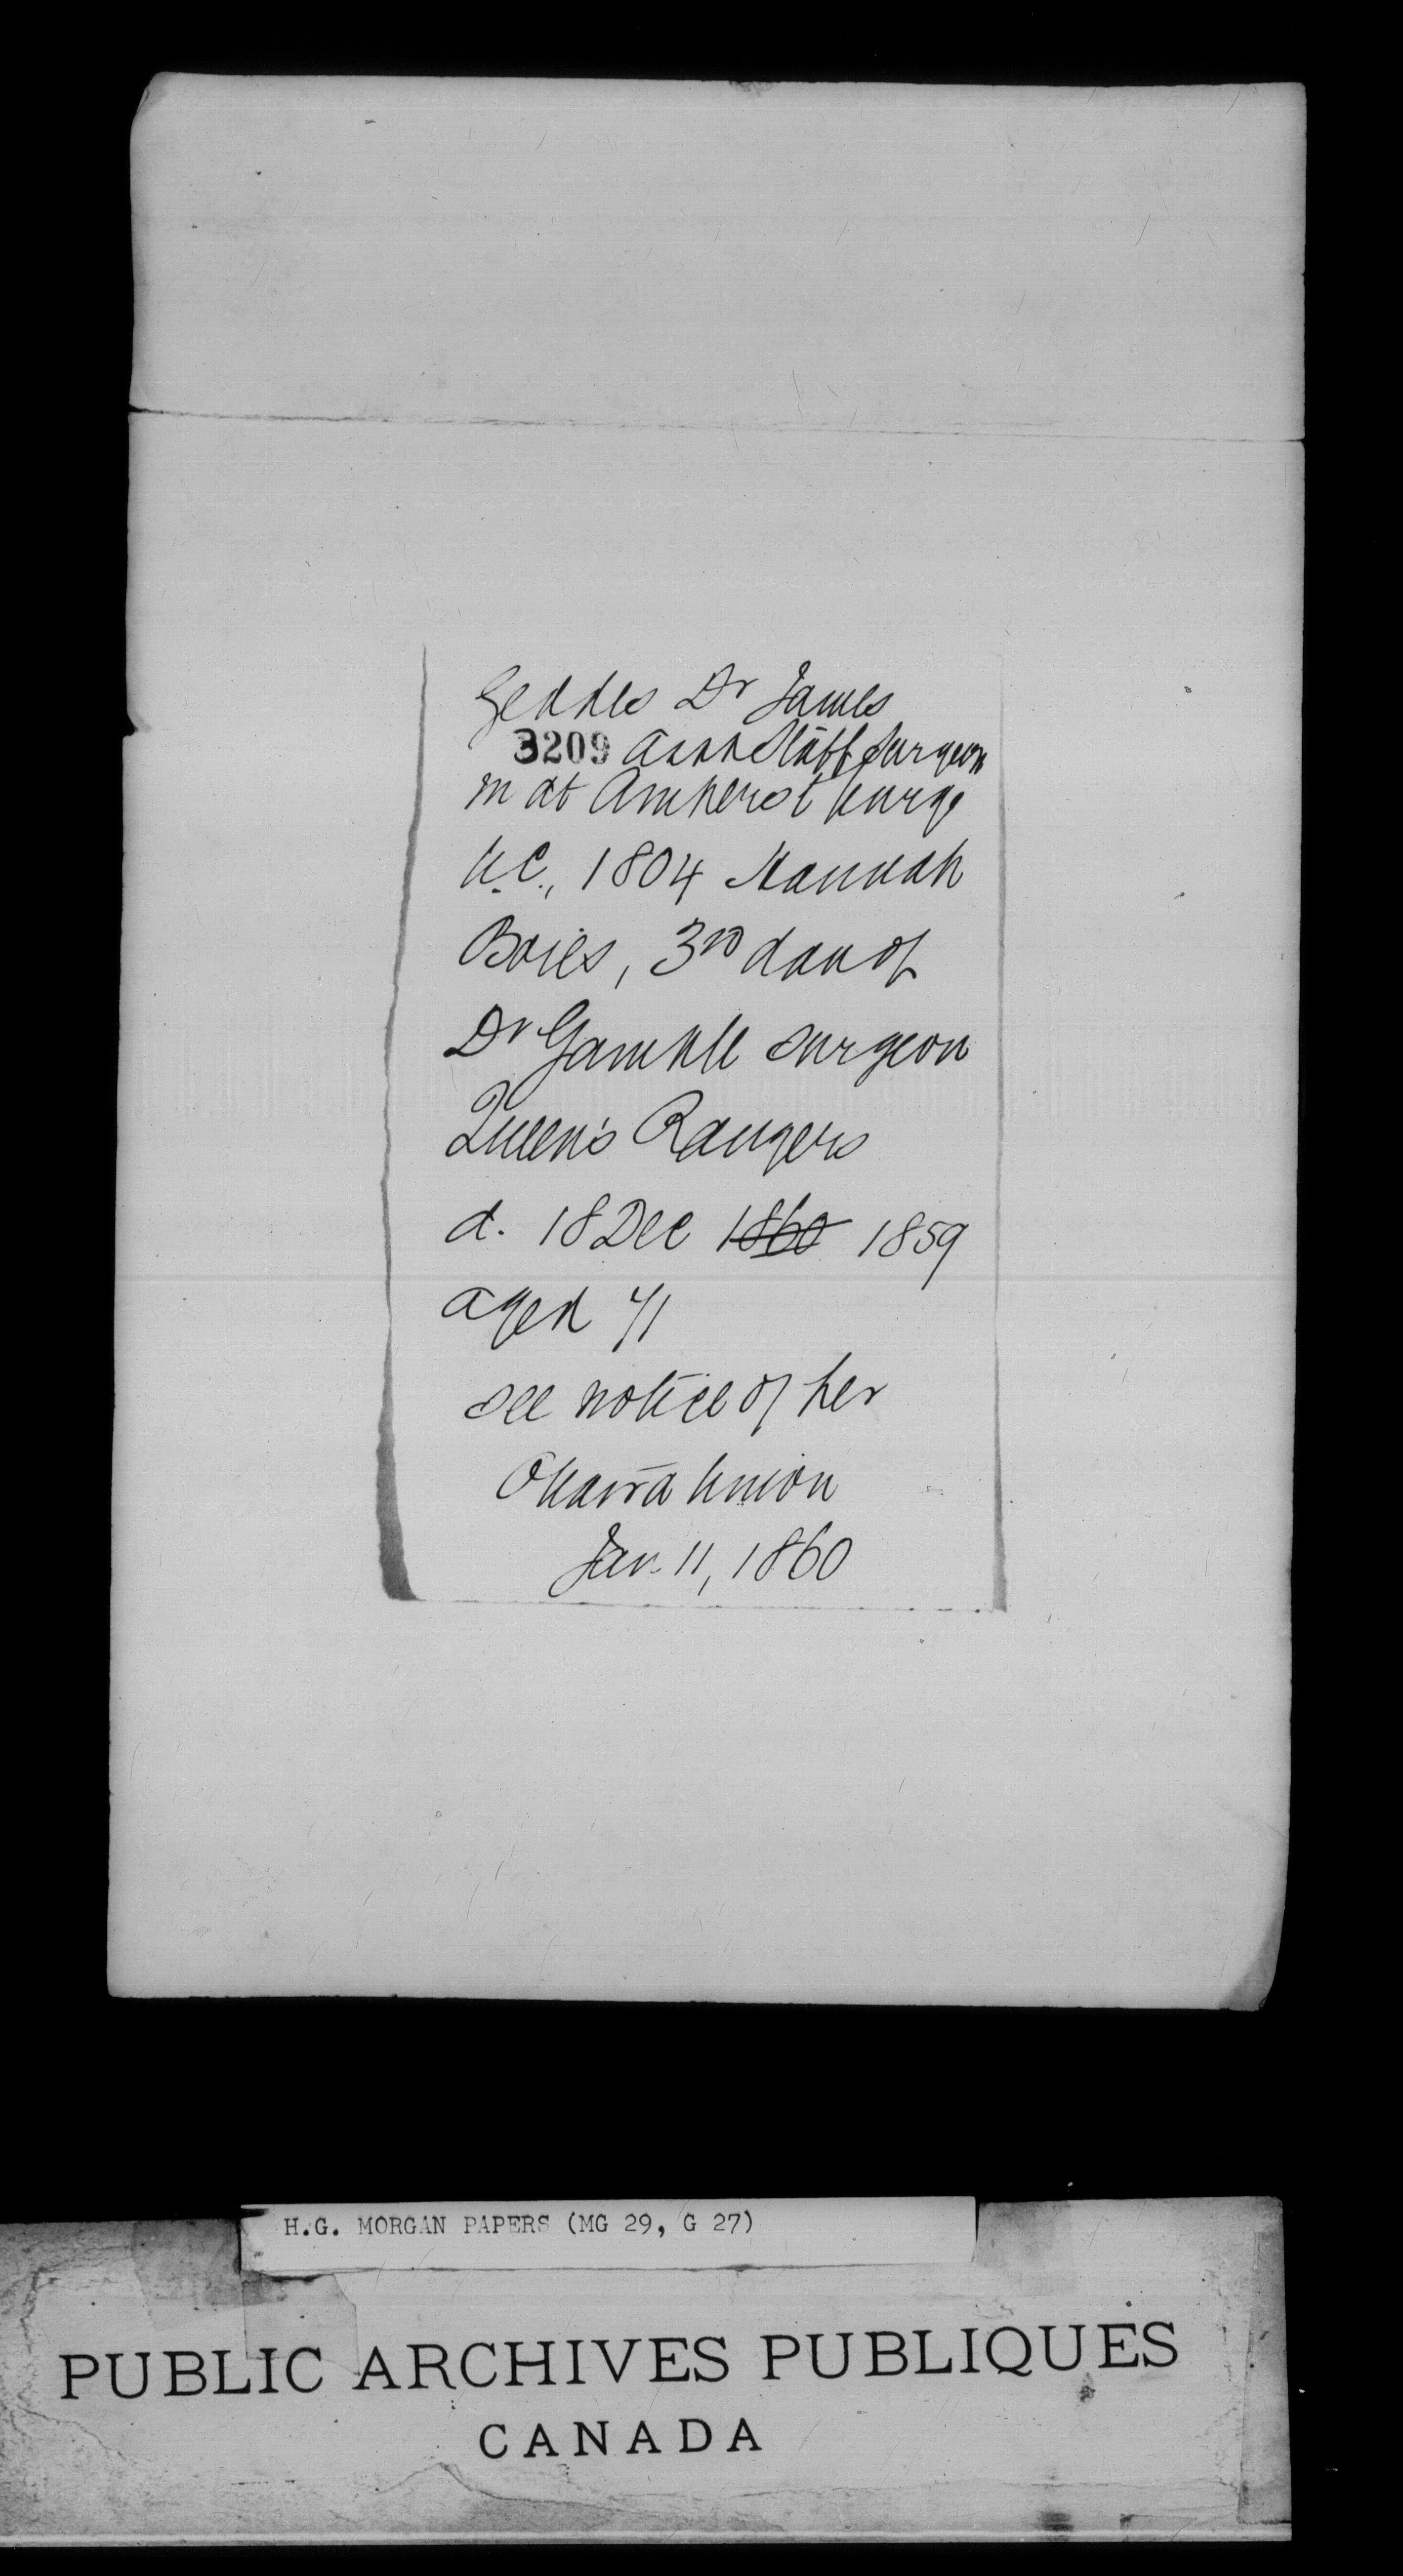 Geddes Dr James
3209 Asst Staff Surgeon
m at Amherstburge
U.C., 1804 Hannah
Boies, 3rd dau of
Dr Gamble surgeon
Queen's Rangers
d. 18 Dec 1860 1859
aged 71
see notice of her
Ottawa Union
Jan 11, 1860
H.G. MORGAN PAPERS (MG 29, G 27)
PUBLIC ARCHIVES PUBLIQUES
CANADA